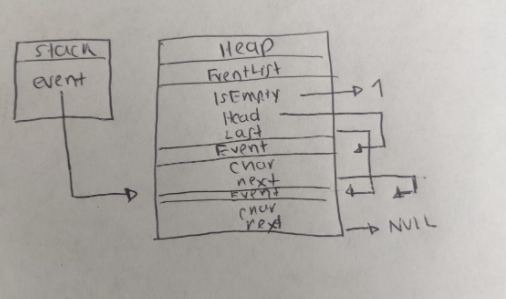 Stack
event
Heap
EventList
IsEmpty 1
Head
Last
Event
char
next
Event
char
next NULL